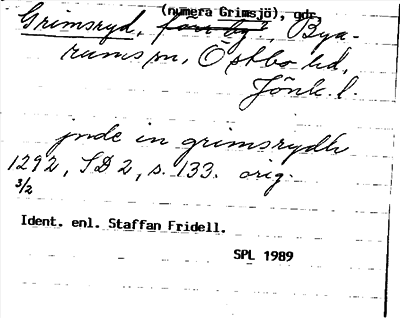 (numera Grimsjö), gdr
Grimsryd, förr by, Bya-
rums sn, Östbo hd,
Jönk. l.
jnde in grimsrydh
1292, SD 2, s. 133. orig.
3/2
Ident. enl. Staffan Fridell.
SPL 1989